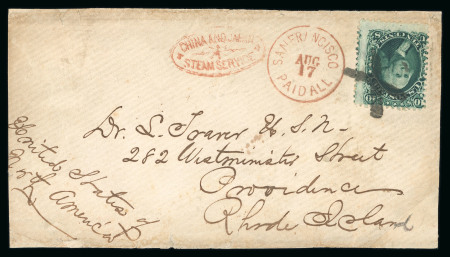 CHINA AND JAPAN
STEAM SERVICE
SAN FRANCISCO
AUG
17
PAID ALL
Dr. L. Toarer U.S.N.
282 Westminister Street
Providence
Rhode Island
United States of
North America